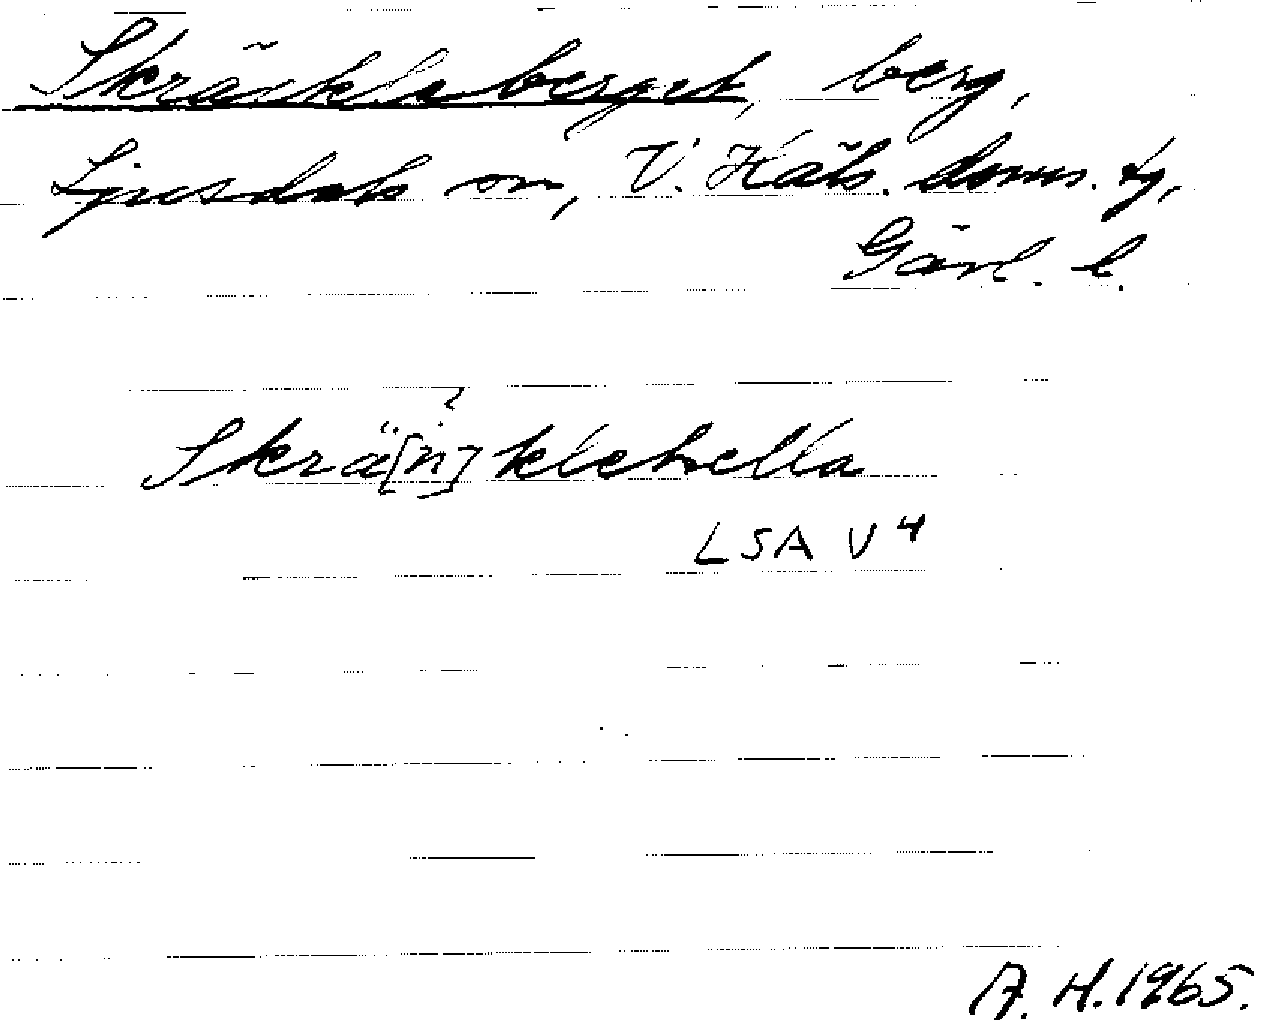 Skräckleberget, berg,
Ljusdals sn, V. Häls. doms. tg,
Gävl. l.
?
Skrä[n]klehella
LSA V 4
A. H. 1965.